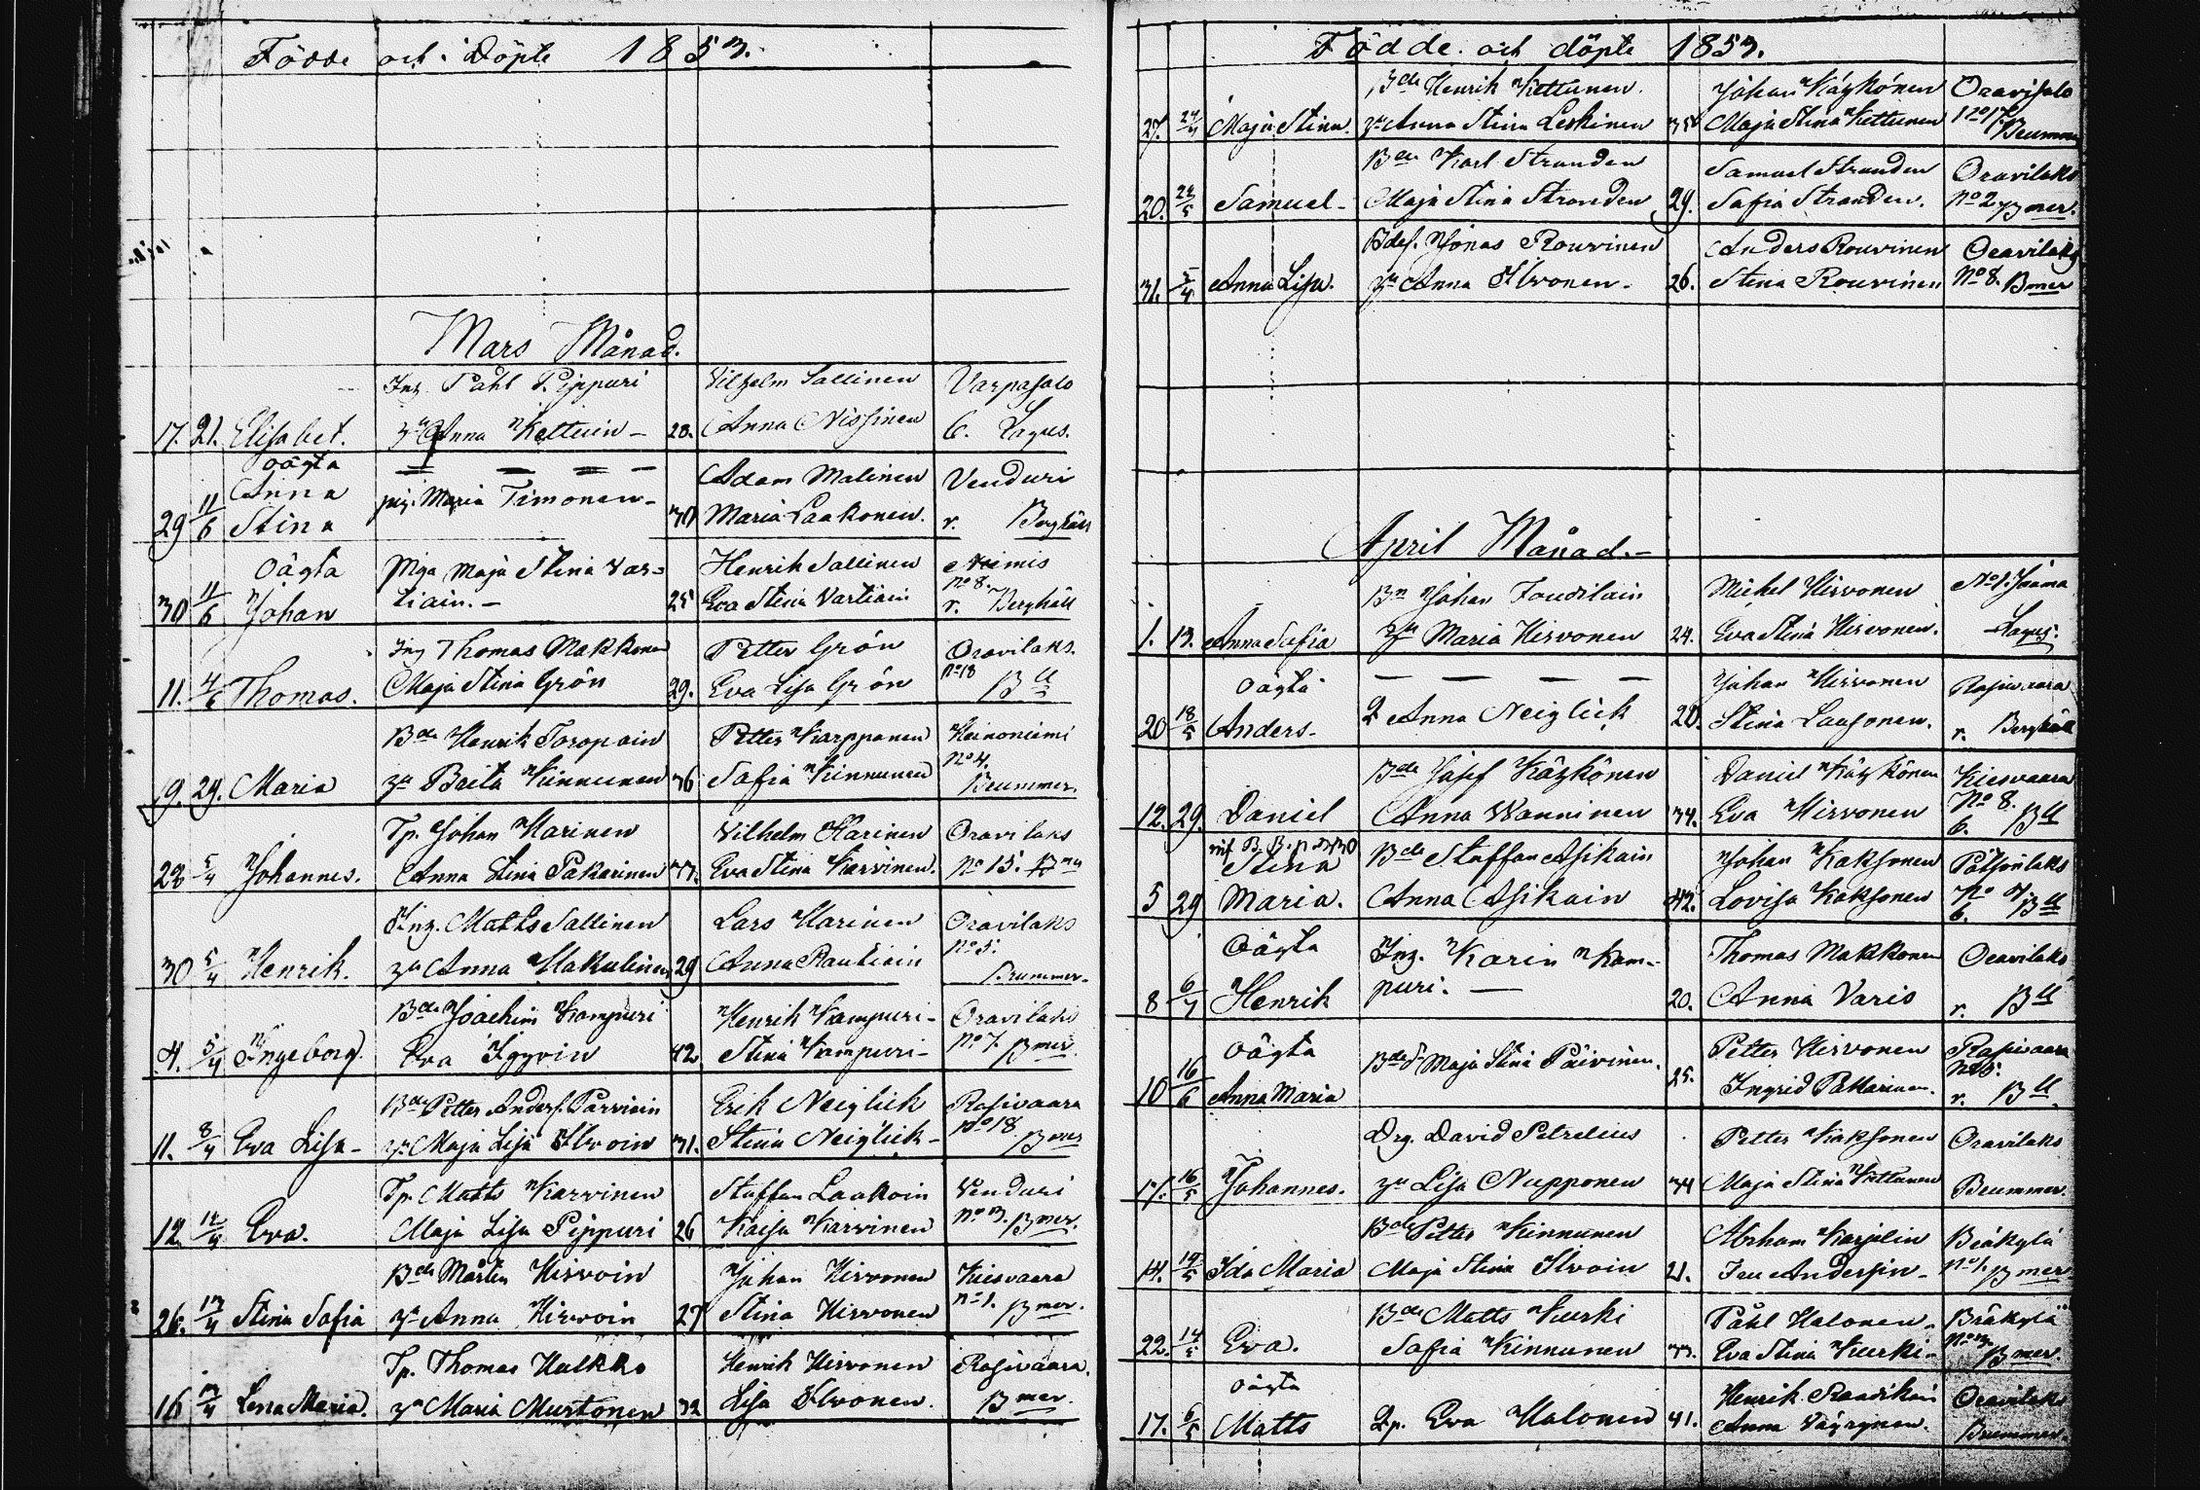 Födde och Döpte 1853.
Mars Månad.
Inh. Påhl Pippuri Vilhelm Sallinen Varpasalo
17. 21. Elisabet. hu Anna Kettuin – 28. Anna Nissinen 6. Lagus.
oägta
Anna Adam Malinen Venduri
29 11/6 Stina pig. Maria Timonen – 30 Maria Laakonen. r. Berghäll
Oägta Piga Maja Stina Var= Henrik Sallinen Niemis
30 11/6 Johan tiain. – 25 Eva Stina Vartiain No 8. r. Berghäll
Inh Thomas Makkonen Petter Grön Oravilaks.
11. Thomas. Maja Stina Grön 29. Eva Lisa Grön No 18 Bll
Bde Henrik Toropain Petter Karppanen Heinoniemi
19. 29. Maria hu Brita Kinnunen 36 Safia Kinnunen No 4. Brummer.
Tp. Johan Karinen Vilhelm Harinen Oravilaks
22 5/4 Johannes. Anna Stina Pakarinen 33. Eva Stina Karvinen. No 15. Bmr
Inh. Matts Sallinen Lars Harinen Oravilaks
30 5/4 Henrik. hu Anna Hakulinen 29 Anna Rautiain No 5. Brummer.
Bde Joachim Kampuri Henrik Kampuri – Oravilaks
4. 5/4 Ingeborg. Eva 42 Stina Kampuri – No 7. Bmer
Bde Petter Anders. Parviain Erik Neiglick Rasivaara
11. 8/4 Eva Lisa – hu Maja Lisa Ilvoin 31. Stina Neiglick – No 18 Bmer
Tp. Matts Karvinen Staffan Laakoin Venduri
12 12/4 Eva. Maja Lisa Pippuri 26 Kaisa Karvinen No 3. Bmer.
Bde Mårten Hirvoin Johan Hirvonen Kiesvaara
26. 13/4 Stina Safia hu Anna Hirvoin 27 Stina Hirvonen No 1. Bmer.
Tp. Thomas Hulkko Henrik Hirvonen Rasivaara.
16 13/4 Lena Maria. hu Maria Murtonen 32 Lisa Ilvonen. Bmer.
Födde och döpte 1853.
Bde Henrik Kettunen. Johan Käyhkönen Oravisalo
27. Maja Stina. hu Anna Stina Leskinen 35 Maja Stina Kettunen No 17 Brummer
Bde Karl Stranden Samuel Stranden Oravilaks
20. Samuel – Maja Stina Stranden 29. Safia Stranden. No 2 Bmer.
Bdes. Jonas Rouvinen Anders Rouvinen Oravilaks
31. 5/4 Anna Lisa. hu Anna Ilvonen – 26. Stina Rouvinen No 8. Bmer
April Månad. –
Bn Johan Toudilain Michel Hirvonen No 1. Jaama
1. 13. Anna Safia hu Maria Hirvonen 24. Eva Stina Hirvonen. Lagus.
Oägta Johan Hirvonen Rasivaara
20 18/5 Anders – Anna Neiglick 20. Stina Lausonen. r. Berghäll
Bde Josef Käyhkönen Daniel Käyhkönen Kiesvaara
12. 29. Daniel Anna Wanninen 34. Eva Hirvonen No 8. 6. Bll
Stina Bde Staffan Asikain Johan Kaksonen Pötsönlaks
5 29 Maria. Anna Asikain 42. Lovisa Kaksonen 6. Bll
Oägta Inh. Karin Kam- Thomas Makkonen Oravilaks
8 Henrik puri. – 20. Anna Varis r. Bll
Oägta Bded. Maja Stina Päivinen. Petter Hirvonen Rasivaara
10 16/6 Anna Maria 25. Ingrid Pakarinen. r. Bll
Drg. David Petrelius Petter Kaksonen Oravilaks
17. 16/5 Johannes. hu Lisa Nupponen 34 Maja Stina Kettunen Brummer.
Bde Petter Kinnunen Abrham Karjalin Bräkylä
14. Ida Maria Maja Stina Ilvoin 21. Anderssin – No 1. Bmer
Bde Matts Kurki Påhl Halonen – Bräkylä
22. 14/5 Eva. Safia Kinnunen 33. Eva Stina Kurki – No 3 Bmer.
oägta Henrik Raadikain Oravilaks
17. 6/5 Matts Eva Halonen 41. Anna Väyrynen. Brummer.